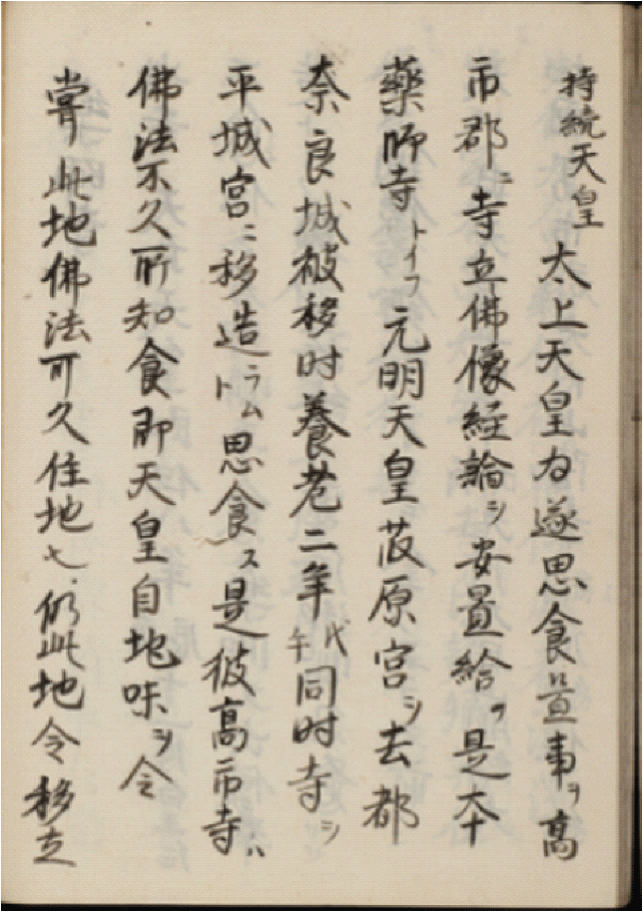 持統天皇
太上天皇為遂思食置事ヲ高
市郡ニ寺立佛像経論ヲ安置給フ是本
藥師寺トイフ元明天皇藤原宮ヲ去都
奈良城被移时養老二年戊午同时寺ヲ
平城宮ニ移造ラムト思食ス是彼高市寺ハ
佛法不久所知食即天皇自地味ヲ令
嘗此地佛法可久住地也仍此地令移立